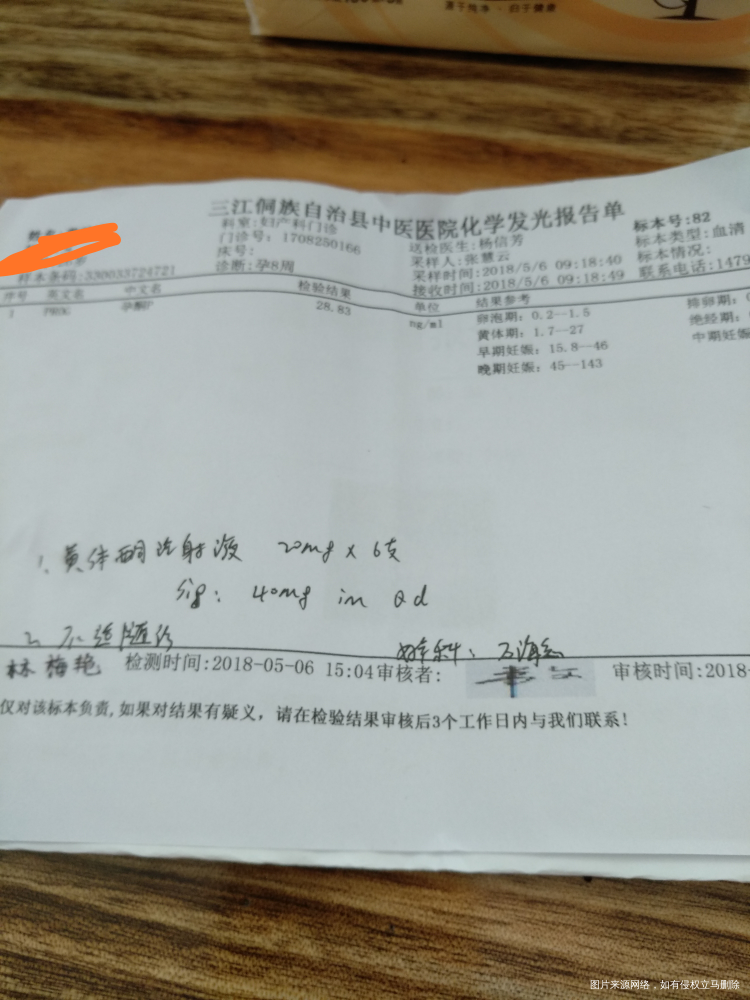 源于纯净·归于健康
三江侗族自治县中医医院化学发光报告单
科室:妇产科门诊
标本号:82
门诊号:1708250166
送检医生:杨信芳
标本类型:血清
床号:
采样人:张慧云
标本情况:
样本条码:330033724721
诊断:孕8周
采样时间:2018/5/6 09:18:40
联系电话:1479
接收时间:2018/5/6 09:18:49
序号 英文名 中文名 检验结果 单位 结果参考
1 PROG 孕酮P 28.83 ng/ml 卵泡期:0.2--1.5 排卵期:
黄体期:1.7--27 绝经期:
早期妊娠:15.8--46 中期妊娠
晚期妊娠:45--143
1. 黄体酮注射液 20mg x 6支
sig: 40mg im Qd
2. 不适随诊
林梅艳 检测时间:2018-05-06 15:04 审核者: 审核时间:2018-
仅对该标本负责,如果对结果有疑义,请在检验结果审核后3个工作日内与我们联系!
图片来源网络,如有侵权立马删除